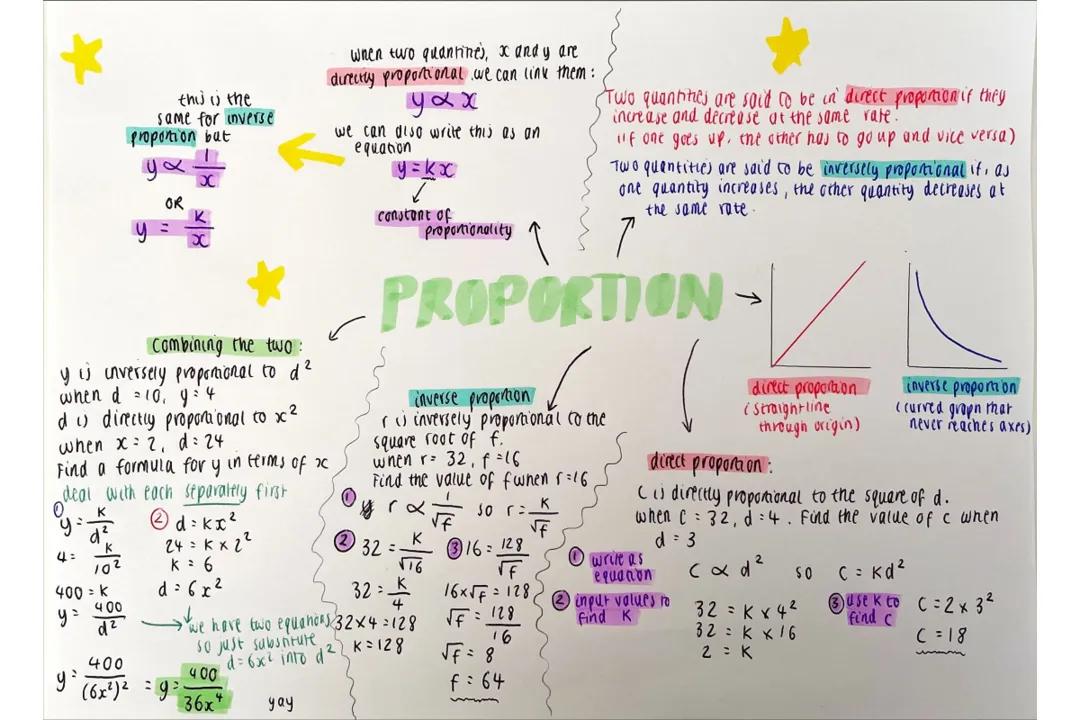 when two quantities, x and y are
directly proportional we can link them:
y ∝ x
we can also write this as an
equation
y = kx
constant of
proportionality
this is the
same for inverse
proportion but
y ∝ 1/x
OR
y = k/x
Two quantities are said to be in direct proportion if they
increase and decrease at the same rate.
(if one goes up, the other has to go up and vice versa)
Two quantities are said to be inversely proportional if, as
one quantity increases, the other quantity decreases at
the same rate.
PROPORTION
direct proportion
(straight line
through origin)
inverse proportion
(curved graph that
never reaches axes)
Combining the two:
y is inversely proportional to d²
when d = 10, y = 4
d is directly proportional to x²
when x = 2, d = 24
Find a formula for y in terms of x
deal with each separately first
① y = k/d²
4 = k/10²
400 = k
y = 400/d²
② d = kx²
24 = k x 2²
k = 6
d = 6x²
we have two equations
so just substitute
d = 6x² into d²
y = 400/(6x²)² = y = 400/36x⁴
yay
inverse proportion
r is inversely proportional to the
square root of f.
when r = 32, f = 16
Find the value of f when r = 16
① r ∝ 1/√f so r = k/√f
② 32 = k/√16
32 = k/4
32 x 4 = 128
k = 128
③ 16 = 128/√f
16 x √f = 128
√f = 128/16
√f = 8
f = 64
direct proportion:
C is directly proportional to the square of d.
when C = 32, d = 4. Find the value of c when
d = 3
① write as
equation
C ∝ d² so C = kd²
② input values to
find K
32 = K x 4²
32 = K x 16
2 = K
③ use K to
find c
C = 2 x 3²
C = 18